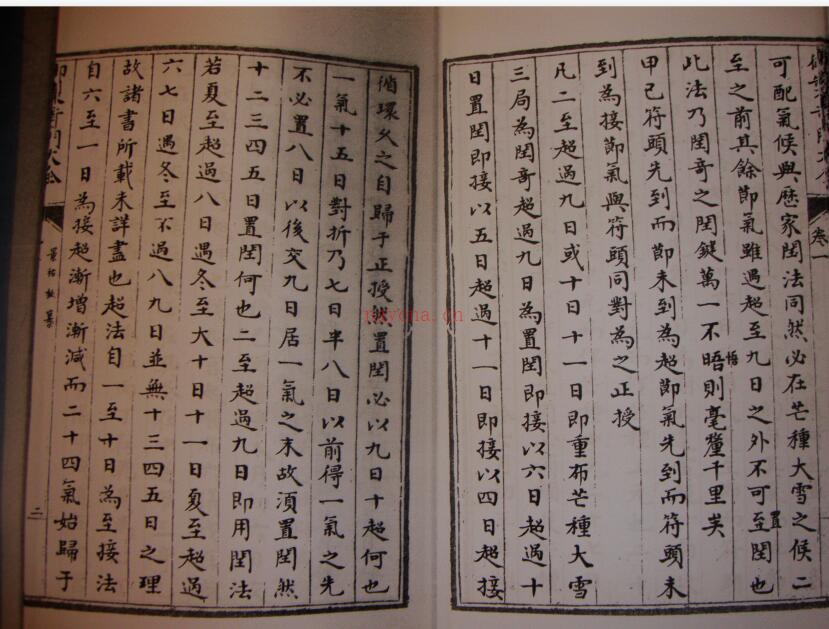 卷一
可配氣候與歷家閏法同然必在芒種大雪之候二
至之前其餘節氣雖遇超至九日之外不可至置閏也
此法乃閏奇之閏鍵萬一不晤悟則毫釐千里矣
甲己符頭先到而節未到為超節氣先到而符頭未
到為接節氣與符頭同對為之正授
凡二至超過九日或十日十一日即重布芒種大雪
三局為閏奇超過九日為置閏即接以六日超過十
日置閏即接以五日超過十一日即接以四日超接
循環久之自歸于正授然置閏必以九日十超何也
一氣十五日對折乃七日半八日以前得一氣之先
不必置八日以後交九日居一氣之末故須置閏然
十二三四五日置閏何也二至超過九日即用閏法
若夏至超過八日遇冬至大十日十一日夏至超過
六七日遇冬至不過八九日並無十三四五日之理
故諸書所載未詳盡也超法自一至十日為至接法
自六至一日為接超漸增漸減而二十四氣始歸于
二
nayona.cn